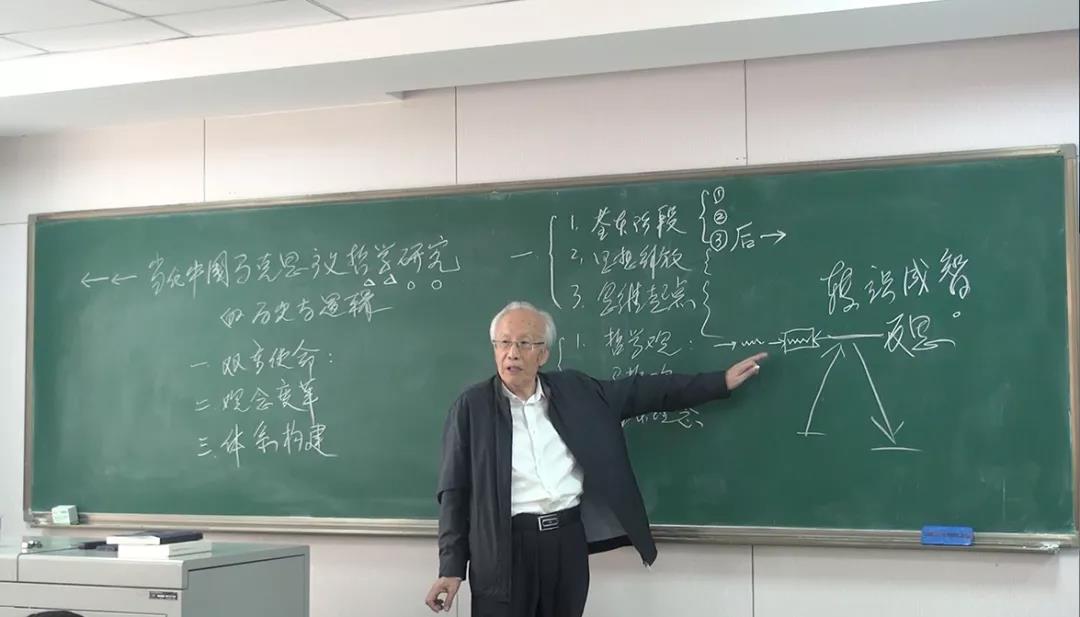 ←← 当代中国马克思主义哲学研究
的历史与逻辑
一. 双重使命:
二. 观念变革
三. 体系构建
一.
1. 基本阶段
2. 思想解放
3. 思维起点
① 
② 
③ 后→
1. 哲学观:
念
转识成智
反思